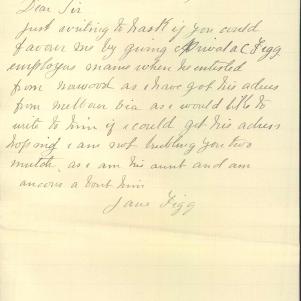 Dear Sir
Just writing to hask if you could
favour me by giving Privat A C Figg
employers name when he entisled
from nowood as i have got his adress
from melbourn as i would like to
write to him if i could get his adress
hopsing i am not trubling you two
mutch as i am his aunt and am
ancous a bout him
Jane Figg